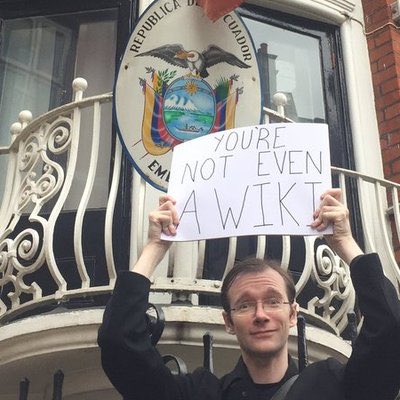 REPÚBLICA DEL ECUADOR
EM
YOU'RE
NOT EVEN
A WIKI